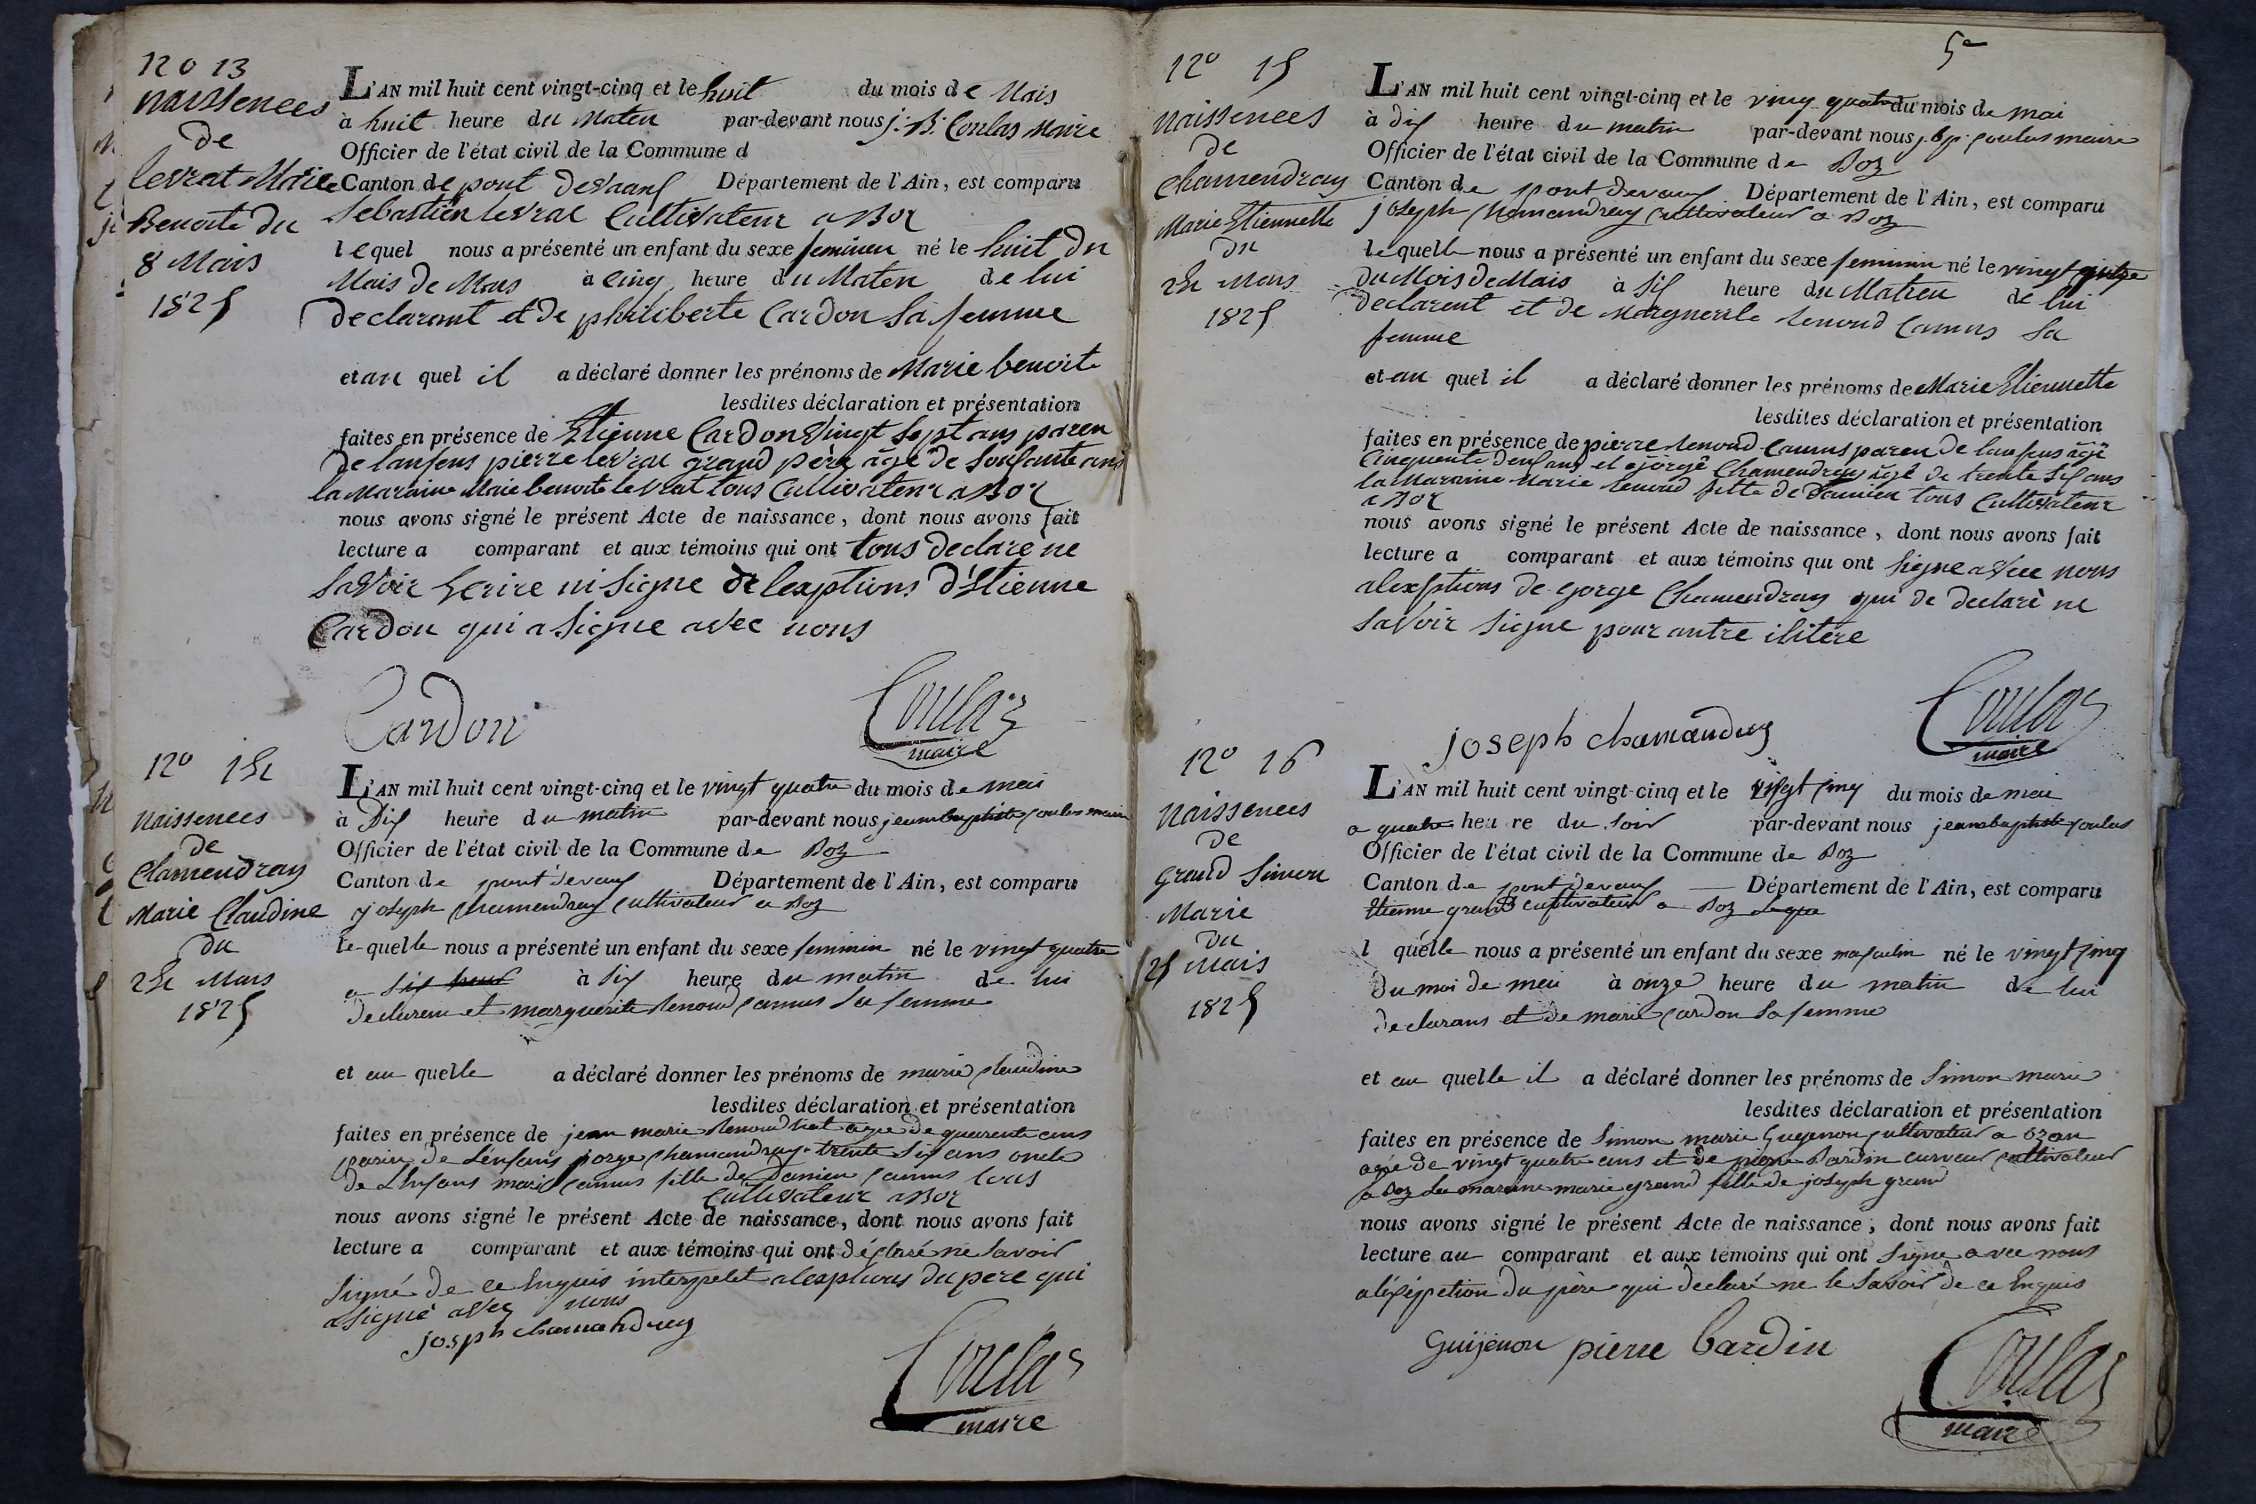 N o 13
naissences
de
levrat Marie
Benoite du
8 Mais
1825
L'AN mil huit cent vingt-cinq et le huit du mois de Mais
à huit heure du Maten par-devant nous j. B. Coulas Maire
Officier de l'état civil de la Commune d
Canton de pont devaux Département de l'Ain, est comparu
Sebastien levrat Cultivateur a Boz
lequel nous a présenté un enfant du sexe feminen né le huit du
Mais de Mais à cinq heure du Maten de lui
declarant et de philiberte Cardon Sa femme
et au quel il a déclaré donner les prénoms de Marie benoite
lesdites déclaration et présentation
faites en présence de Etienne Cardon Vingt Sept ans paren
de lanfens pierre levrat grand père âgé de Soixante ans
la Maraine Maie benoite levrat tous Cultivateur a Boz
nous avons signé le présent Acte de naissance, dont nous avons fait
lecture a comparant et aux témoins qui ont tous declare ne
Savoir Ecrire ni Signe de lexptions d'Etienne
Cardon qui a Signe avec nous
Cardon
Coulas
maire
N° 14
naissences
de
Chamendray
Marie Claudine
du
24 Mais
1825
L'AN mil huit cent vingt-cinq et le vingt quatre du mois de mai
à Dix heure du matin par-devant nous jeanbaptiste coulas maire
Officier de l'état civil de la Commune de Boz
Canton de pont devaux Département de l'Ain, est comparu
joseph chamendray cultivateur a Boz
lequelle nous a présenté un enfant du sexe feminin né le vingt quatre
a six heur à six heure du matin de lui
declaren et marguerite Renoud camus sa femme
et au quelle a déclaré donner les prénoms de marie claudine
lesdites déclaration et présentation
faites en présence de jean marie Renoud agé de quarente ans
parin de Lenfans jorge chamandray trente Six ans oncle
de Lenfans marie camus fille de Damien camus tous
Cultivateur a Boz
nous avons signé le présent Acte de naissance, dont nous avons fait
lecture a comparant et aux témoins qui ont déclaré ne Savoir
Signé de ce Enquis interpelet alexptions du pere qui
a Signé avec nous
josph chamandrey
Coulas
maire
5e
N° 15
naissences
de
Chamendray
Marie Etiennette
du
24 Mais
1825
L'AN mil huit cent vingt-cinq et le vingt quatre du mois de mai
à dix heure du matin par-devant nous j. bp. coulas maire
Officier de l'état civil de la Commune de Boz
Canton de pont devaux Département de l'Ain, est comparu
joseph Chamandray cultivateur a Boz
lequelle nous a présenté un enfant du sexe feminin né le vingt
du Mois de Mais à Six heure du Matien de lui
declarent et de Marguerite Renoud Camus Sa
femme
et au quel il a déclaré donner les prénoms de Marie Etiennette
lesdites déclaration et présentation
faites en présence de pierre Renoud Camus paren de lanfens âgé
Cinquente deux ans et gorge Chamendray âgé de trente Six ans
la Maraine Marie Renoud fille de Damien tous Cultivateur
a Boz
nous avons signé le présent Acte de naissance, dont nous avons fait
lecture a comparant et aux témoins qui ont Signe avec nous
alexsptions de gorge Chamendray qui de declarè ne
Savoir Signe pour autre ilitère
joseph chamandrey
Coulas
maire
N° 16
naissences
de
grand Simon
Marie
du
25 Mais
1825
L'AN mil huit cent vingt-cinq et le vingt cinq du mois de mai
a quatre heure du Soir par-devant nous jeanbaptiste coulas
Officier de l'état civil de la Commune de Boz
Canton de pont devaux Département de l'Ain, est comparu
Etienne grand cultivateur a Boz
l quelle nous a présenté un enfant du sexe masculin né le vingt cinq
du moi de mai à onze heure du matin de lui
declarans et de marie cardon Sa femme
et au quelle il a déclaré donner les prénoms de Simon marie
lesdites déclaration et présentation
faites en présence de Simon marie Gugenon cultivateur a ozan
agé de vingt quatre ans et de pierre Bardin cultivateur
a Boz La maraine marie grand fille de joseph grand
nous avons signé le présent Acte de naissance, dont nous avons fait
lecture au comparant et aux témoins qui ont Signe avec nous
du père qui declaré ne le Savoir de ce Enquis
Guijenon pierre bardin
Coulas
maire